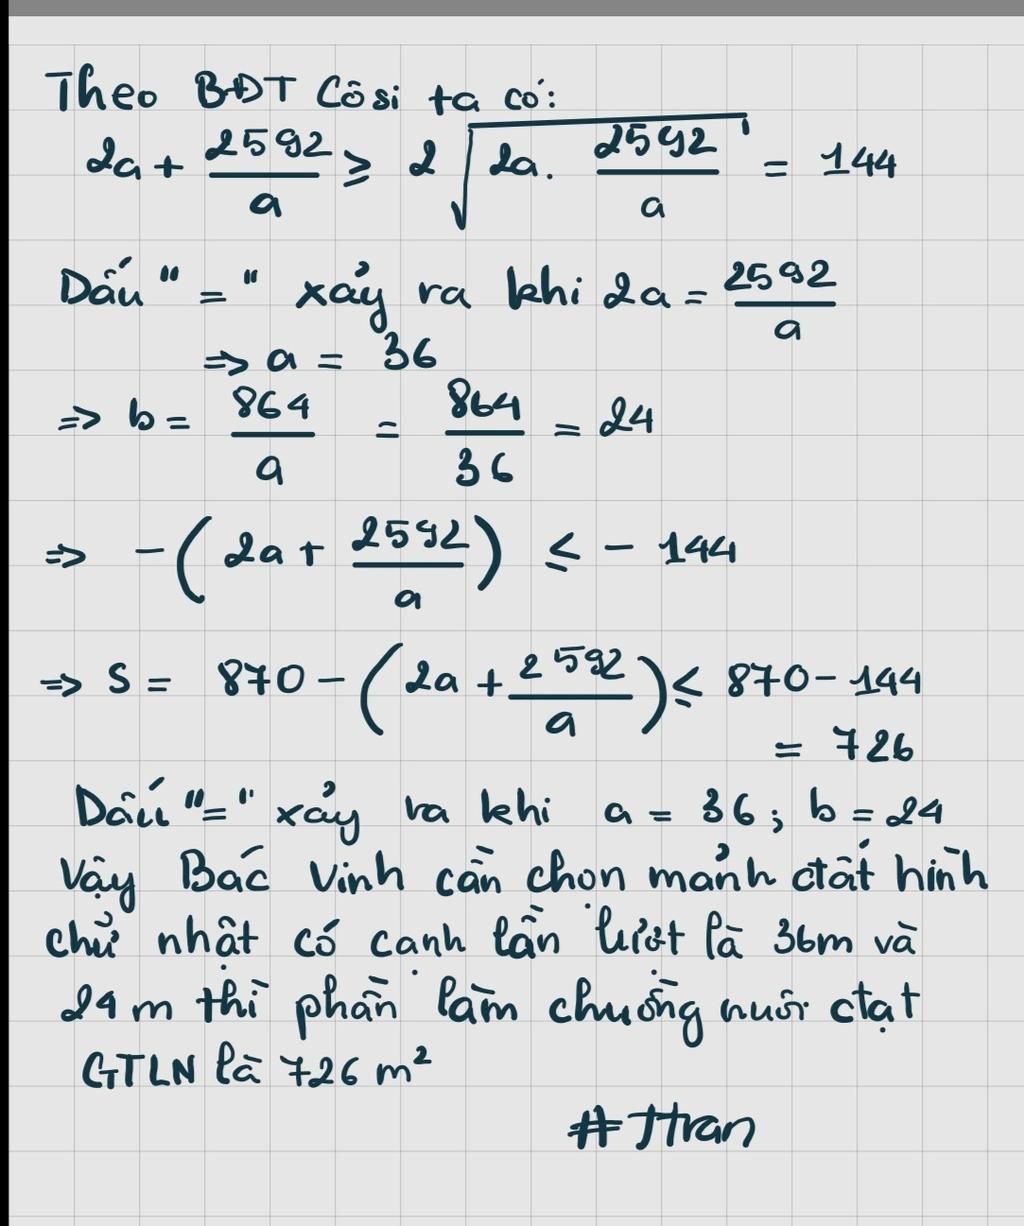 Theo BĐT Côsi ta có:
2a + 2592/a ≥ 2√(2a. 2592/a) = 144
Dấu "=" xảy ra khi 2a = 2592/a
⇒ a = 36
⇒ b = 864/a = 864/36 = 24
⇒ -(2a + 2592/a) ≤ - 144
⇒ S = 870 - (2a + 2592/a) ≤ 870 - 144
= 726
Dấu "=" xảy ra khi a = 36; b = 24
Vậy Bác Vinh cần chọn mảnh đất hình
chữ nhật có cạnh lần lượt là 36m và
24 m thì phần làm chuồng nuôi đạt
GTLN là 726 m²
#JTtran